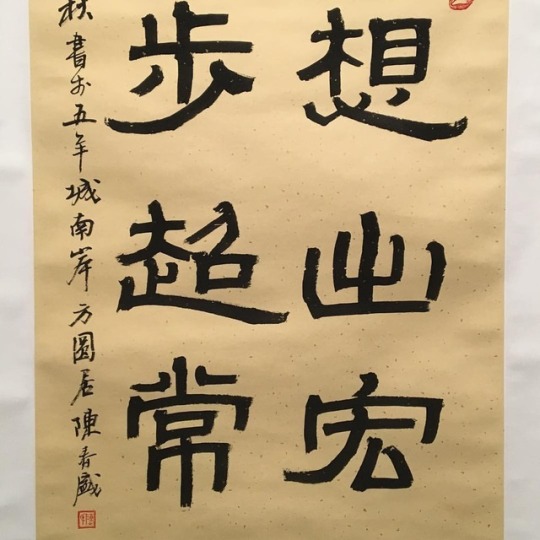 想出宏
步超常
秋書於五羊城南岸方圓居陳春盛